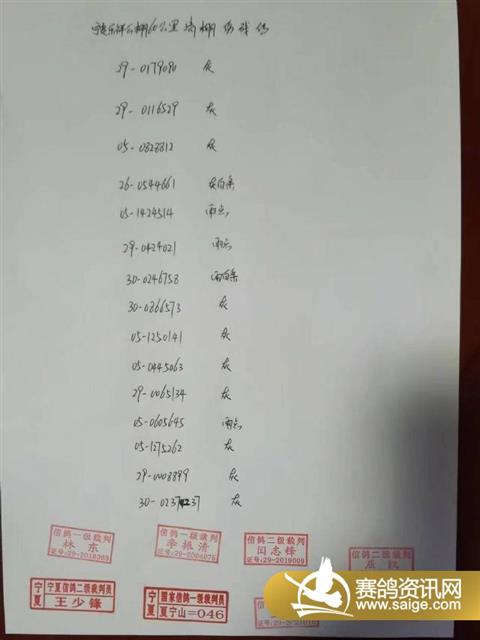 公棚60公里清棚
29-0179080 灰
29-0116529 灰
05-0828812 灰
26-0544661 灰白条
05-1424514 雨点
29-0424021 雨点
30-0246758 雨白条
30-0866573 灰
05-1250141 灰
05-0445063 灰
29-0065134 灰
05-0605645 雨点
05-1275262 灰
29-0008899 灰
30-0237 37 灰
信鸽一级裁判 信鸽一级裁判 信鸽二级裁判 信鸽二级裁判
林东 李振清 闫志锋
证号:29-2018009 证号:29-2006075 证号:29-2019009
宁夏 宁夏信鸽二级裁判员 王少锋
宁夏 国家信鸽一级裁判员 宁山=046
赛鸽资讯网
www.saige.com